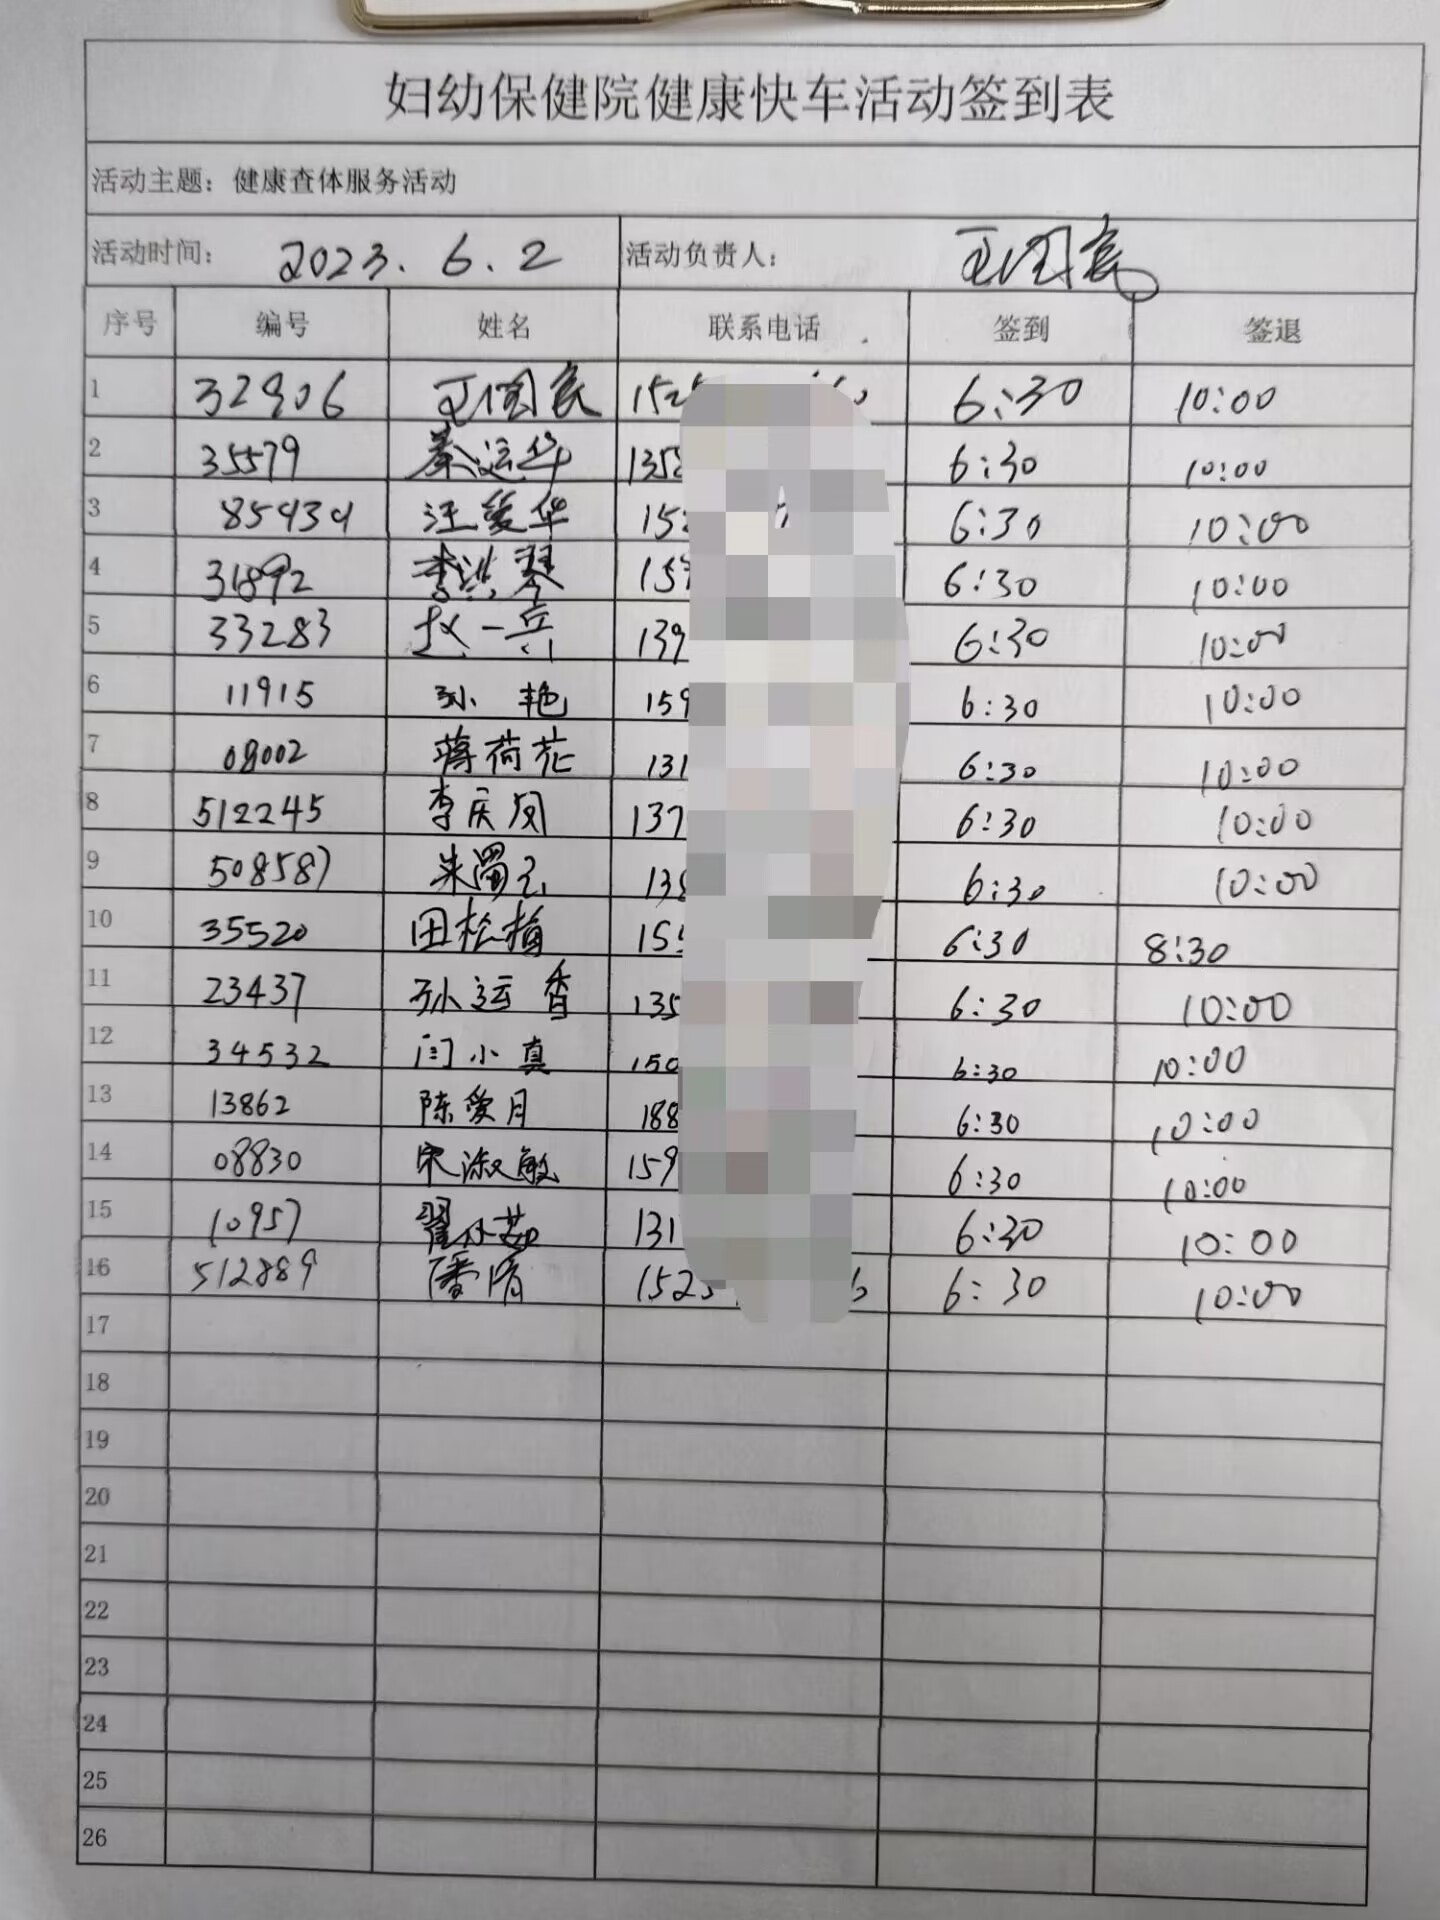 妇幼保健院健康快车活动签到表
活动主题：健康查体服务活动
活动时间： 2023.6.2 活动负责人： 王国良
序号 编号 姓名 联系电话 签到 签退
1 32906 王国良 152 6:30 10:00
2 35579 秦运华 135 6:30 10:00
3 85939 汪爱华 15 6:30 10:00
4 31892 李洪琴 15 6:30 10:00
5 33283 赵一兵 139 6:30 10:00
6 11915 孙艳 159 6:30 10:00
7 08002 蒋荷花 131 6:30 10:00
8 512245 李庆凤 137 6:30 10:00
9 508587 朱 13 6:30 10:00
10 35520 田松梅 155 6:30 8:30
11 23437 孙运香 135 6:30 10:00
12 34532 闫小真 150 6:30 10:00
13 13862 陈爱月 188 6:30 10:00
14 08830 宋淑敏 159 6:30 10:00
15 10957 翟小茹 131 6:30 10:00
16 512889 潘 1525 6 6:30 10:00
17
18
19
20
21
22
23
24
25
26